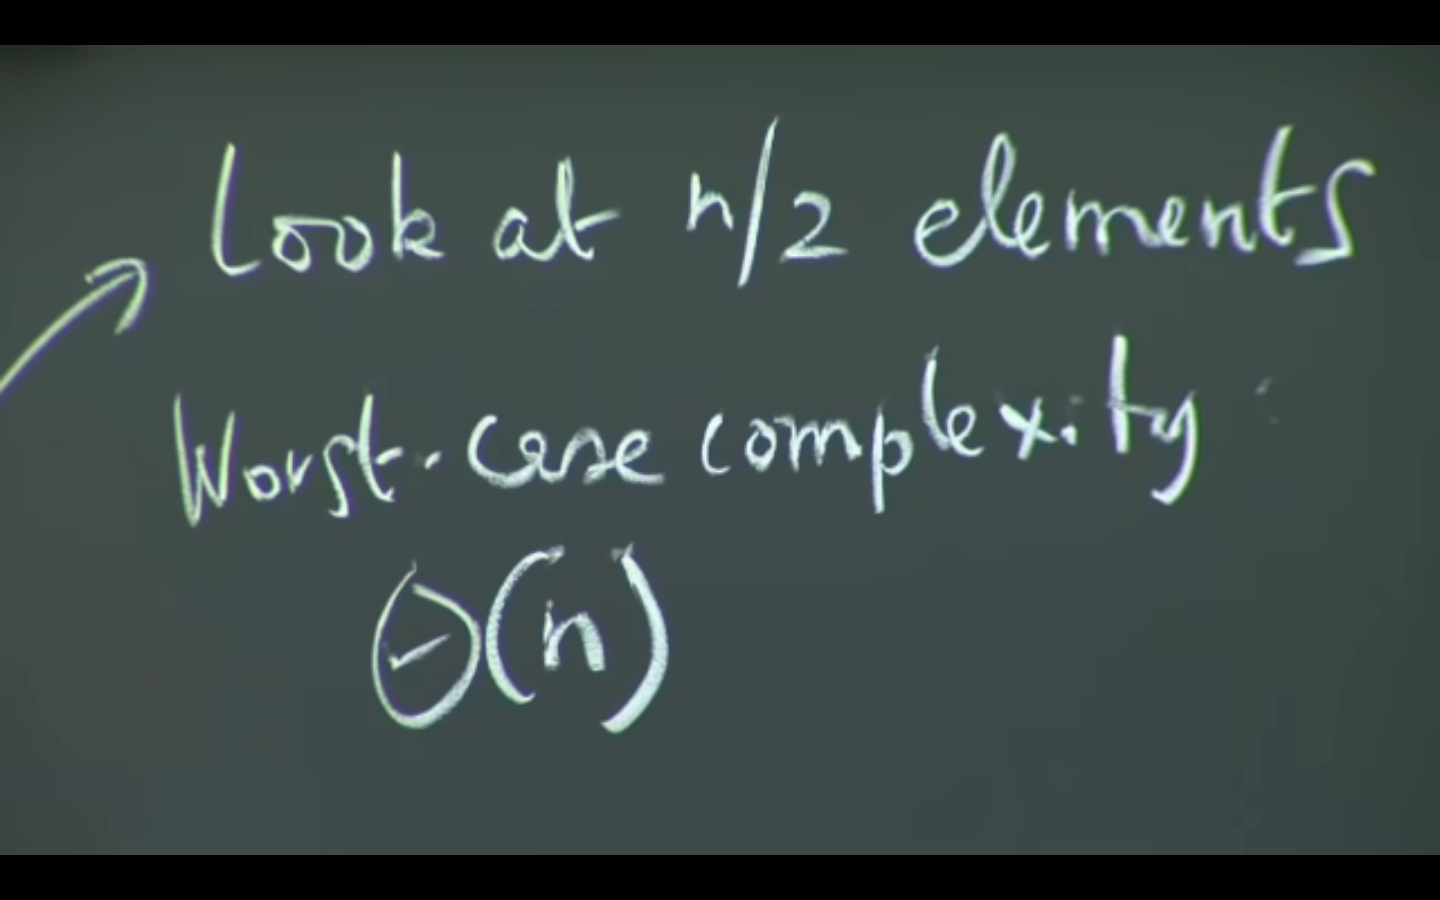 Look at n/2 elements
Worst-case complexity
Θ(n)